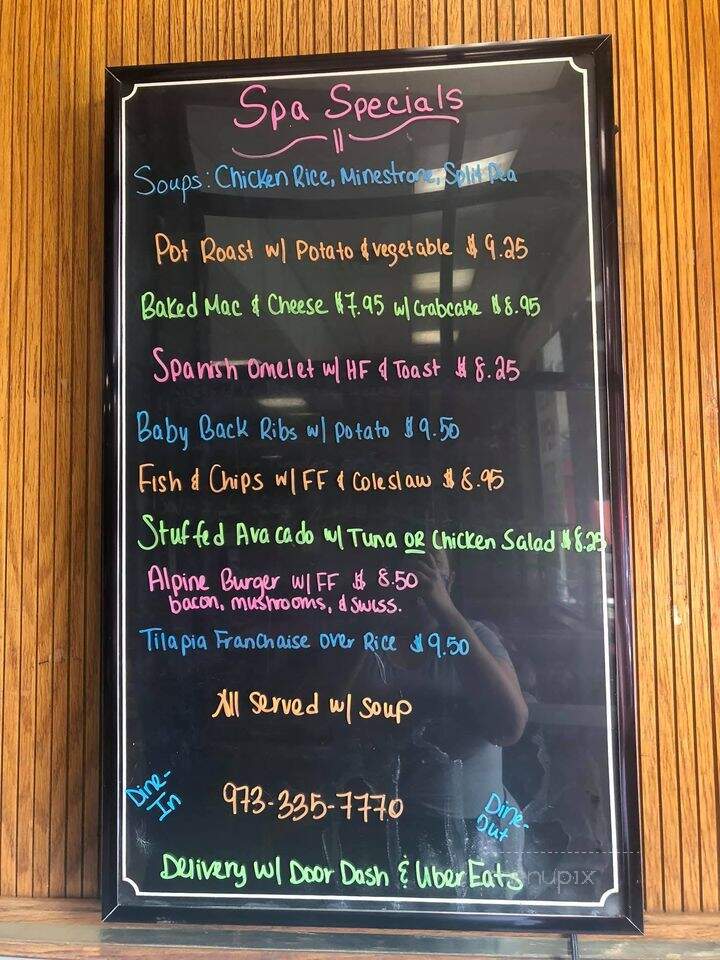 Spa Specials
Soups: Chicken Rice, Minestrone, Split Pea
Pot Roast w/ Potato & vegetable $9.25
Baked Mac & Cheese $7.95 w/ crabcake $8.95
Spanish Omelet w/ HF & Toast $8.25
Baby Back Ribs w/ potato $9.50
Fish & Chips w/ FF & Coleslaw $8.95
Stuffed Avacado w/ Tuna OR Chicken Salad $8.25
Alpine Burger w/ FF $8.50
bacon, mushrooms, & swiss.
Tilapia Franchaise over Rice $9.50
All served w/ soup
Dine-
In
973-335-7770
Dine-
Out
Delivery w/ Door Dash & Uber Eats